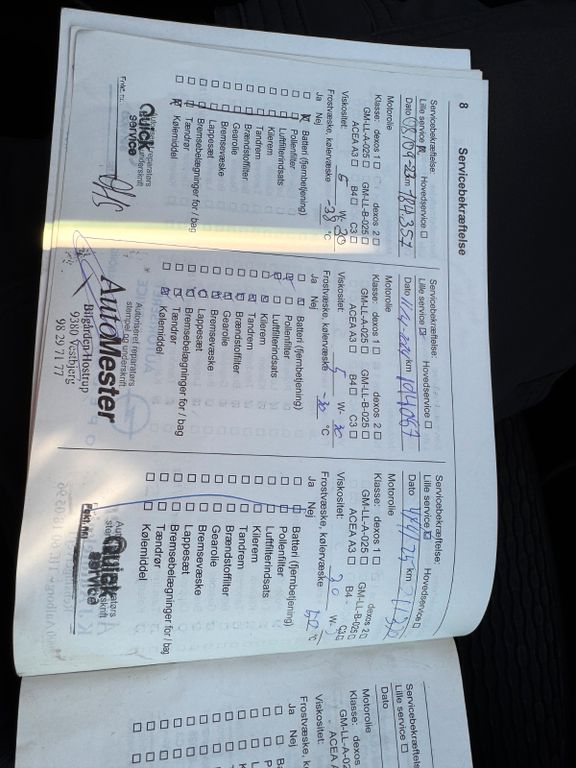 8
Servicebekræftelse
Servicebekræftelse:
Lille service Hovedservice
Dato km 184.357
Motorolie
Klasse: dexos 1 dexos 2
GM-LL-A-025 GM-LL-B-025
ACEA A3 B4 C3
Viskositet: 5 W- 30
Frostvæske, kølervæske -38 °C
Ja Nej
Batteri (fjernbetjening)
Pollenfilter
Luftfilterindsats
Kilerem
Tandrem
Brændstoffilter
Gearolie
Bremsevæske
Lappesæt
Bremsebelægninger for / bag
Tændrør
Kølemiddel
Quick
service
Servicebekræftelse:
Lille service Hovedservice
Dato km
Motorolie
Klasse: dexos 1 dexos 2
GM-LL-A-025 GM-LL-B-025
ACEA A3 B4 C3
Viskositet: 5 W- 30
Frostvæske, kølervæske -30 °C
Ja Nej
Batteri (fjernbetjening)
Pollenfilter
Luftfilterindsats
Kilerem
Tandrem
Brændstoffilter
Gearolie
Bremsevæske
Lappesæt
Bremsebelægninger for / bag
Tændrør
Kølemiddel
Autoriseret reparatørs
stempel og underskrift
AutoMester
Bilgården Hostrup
9380 Vestbjerg
98 29 71 77
Servicebekræftelse:
Lille service Hovedservice
Dato km
Motorolie
Klasse: dexos 1 dexos 2
GM-LL-A-025 GM-LL-B-025
ACEA A3 B4 C3
Viskositet: W-
Frostvæske, kølervæske °C
Ja Nej
Batteri (fjernbetjening)
Pollenfilter
Luftfilterindsats
Kilerem
Tandrem
Brændstoffilter
Gearolie
Bremsevæske
Lappesæt
Bremsebelægninger for / bag
Tændrør
Kølemiddel
Quick
service
Servicebekræftelse
Lille service
Dato
Motorolie
Klasse: dexos
GM-LL-A-02
ACEA
Viskositet:
Frostvæske, k
Ja Nej